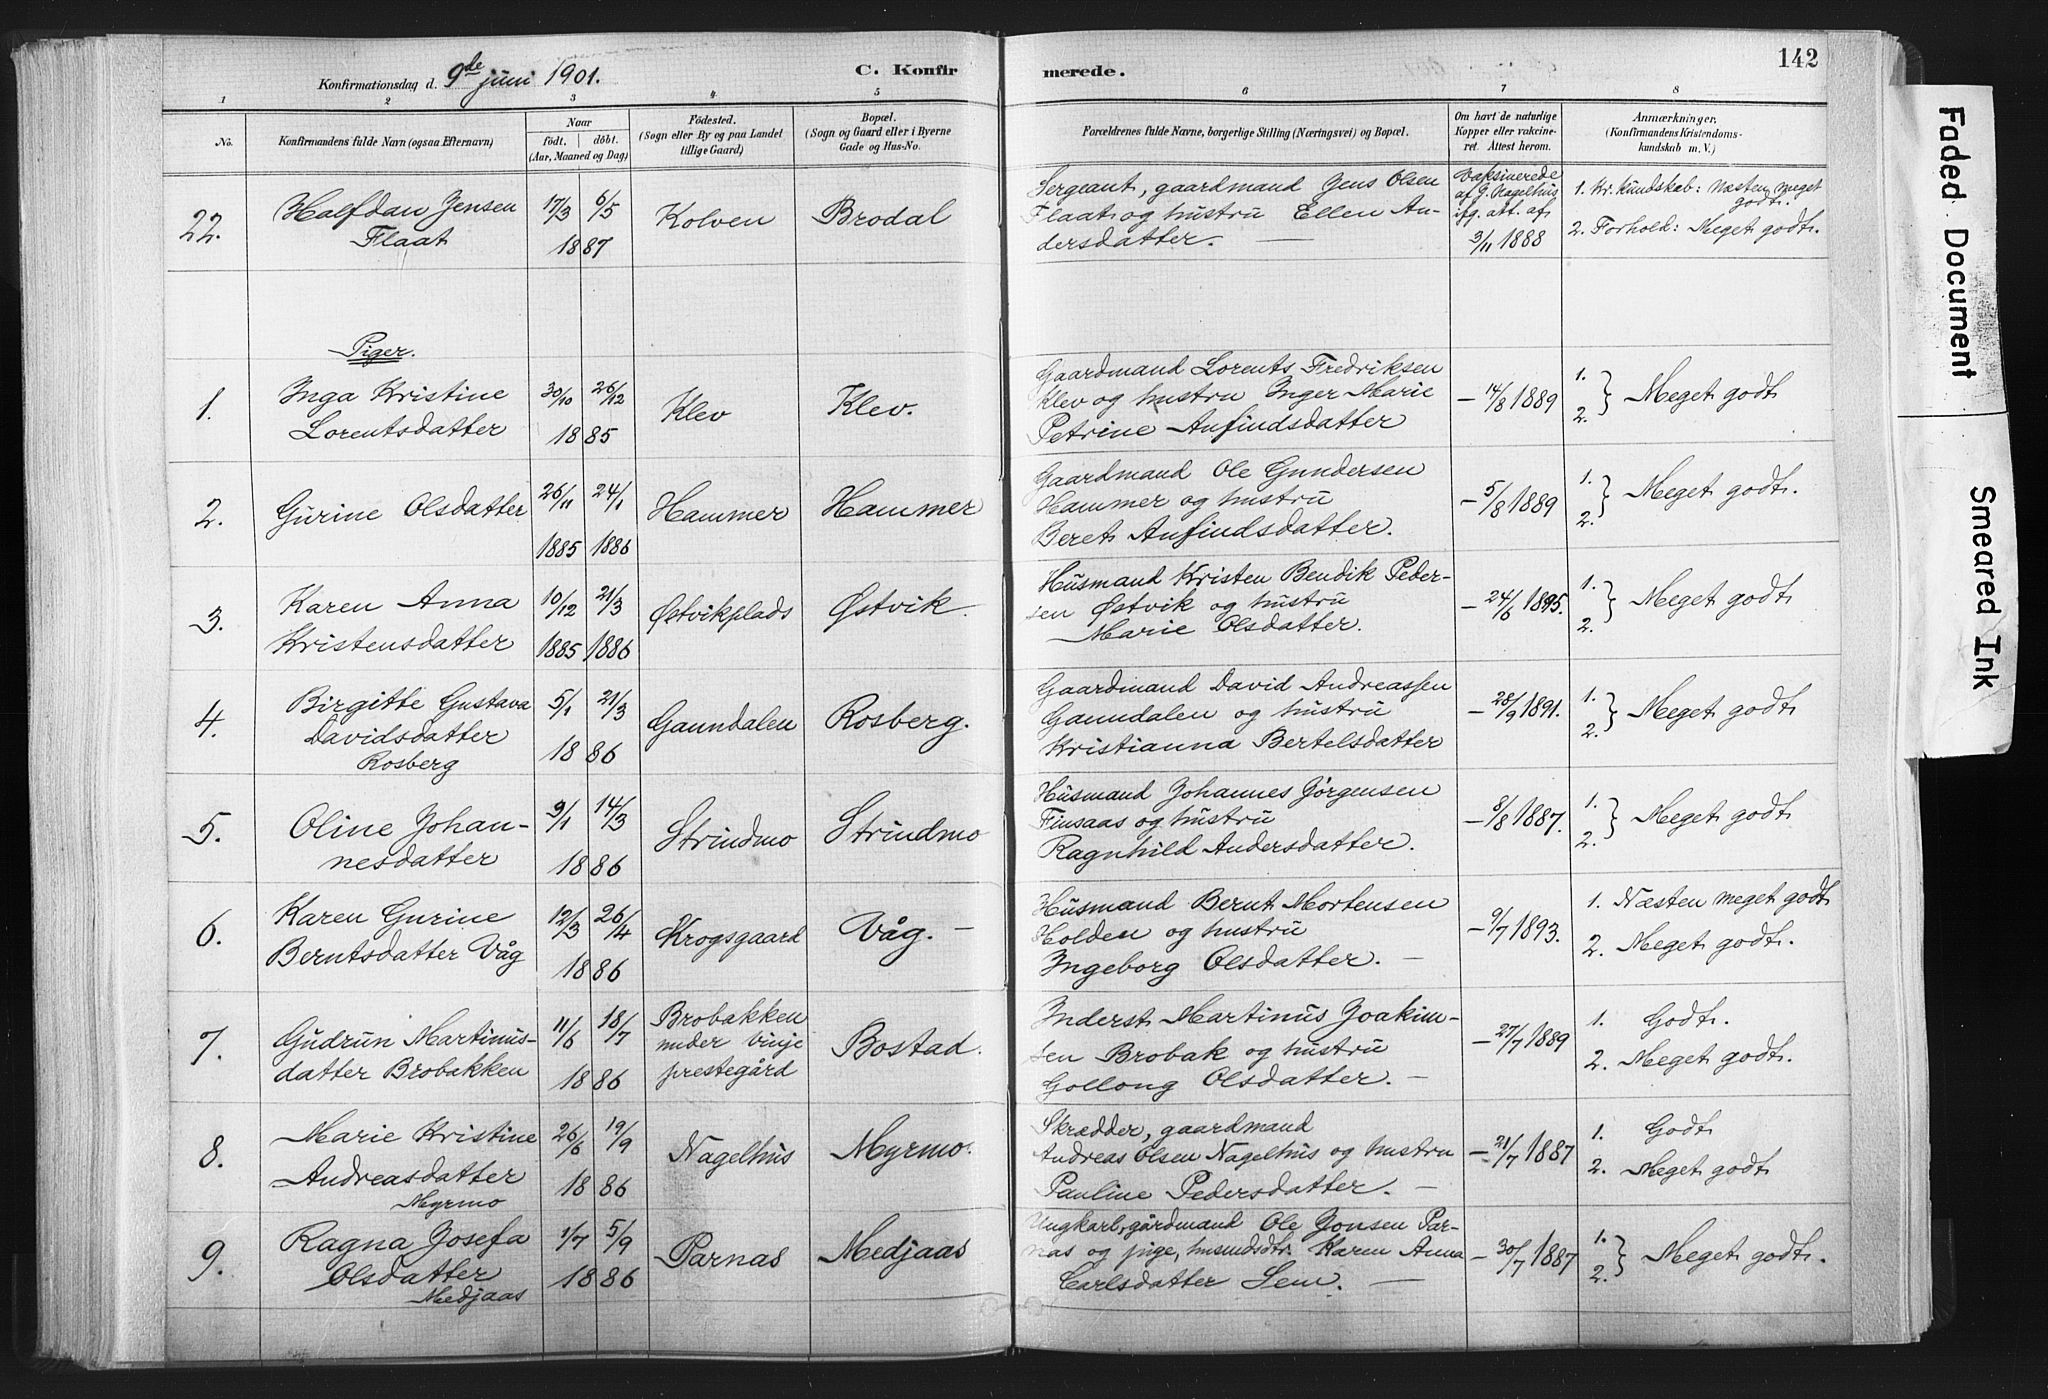 Konfirmationsdag d. 9de juni 1901.
C. Konfirmerede.
142
1 2 3 4 5 6 7 8
No.
Konfirmandens fulde Navn (ogsaa Efternavn)
Naar
født. døbt.
(Aar, Maaned og Dag)
Fødested.
(Sogn eller By og paa Landet
tillige Gaard)
Bopæl.
(Sogn og Gaard eller i Byerne
Gade og Hus-No.
Forældrenes fulde Navne, borgerlige Stilling (Næringsvei) og Bopæl.
Om havt de naturlige
Kopper eller vakcine-
ret. Attest herom.
Anmærkninger,
(Konfirmandens Kristendoms-
kundskab m. V.)
22.
Halfdan Jensen
Flaat
17/3 6/5
1887
Kolven
Brodal
Sergeant, gaardmand Jens Olsen
Flaat og hustru Ellen An-
dersdatter. —
Vaksinerede
af J. Nagelhus
ifg. att. af
3/11 1888
1. Kr. kundskab: Næsten meget
godt.
2. Forhold: Meget godt.
Piger.
1.
Inga Kristine
Lorentsdatter
30/10 26/12
1885
Klev
Klev.
Gaardmand Lorents Fredriksen
Klev og hustru Inger Marie
Petrine Anfindsdatter
— 14/8 1889
1.
2. } Meget godt
2.
Gurine Olsdatter
26/11 24/1
1885 1886
Hammer
Hammer
Gaardmand Ole Gundersen
Hammer og hustru
Beret Anfindsdatter.
— 5/8 1889
1.
2. } Meget godt.
3.
Karen Anna
Kristensdatter
10/12 21/3
1885 1886
Østvikplads
Østvik.
Husmand Kristen Bendik Peder-
sen Østvik og hustru
Marie Olsdatter.
— 24/6 1895.
1.
2. } Meget godt
4.
Birgitte Gustava
Davidsdatter
Rosberg
5/1 21/3
1886
Ganndalen
Rosberg.
Gaardmand David Andreassen
Ganndalen og hustru
Kristianna Bertelsdatter
— 28/9 1891.
1.
2. } Meget godt
5.
Oline Johan-
nesdatter
9/1 14/3
1886
Strindmo
Strindmo
Husmand Johannes Jørgensen
Finsaas og hustru
Ragnhild Andersdatter.
— 8/8 1887.
1.
2. } Meget godt
6.
Karen Gurine
Berntsdatter Våg
12/3 26/4
1886
Krogsgaard
Våg. —
Husmand Bernt Mortensen
Holden og hustru
Ingeborg Olsdatter. —
— 9/7 1893.
1. Næsten meget godt
2. Meget godt.
7.
Gudrun Martinus-
datter Brobakken
11/6 18/7
1886
Brobakken
under Vinje
prestegård
Bostad.
Inderst Martinus Joakim-
sen Brobak og hustru
Gollong Olsdatter. —
— 27/7 1889
1. Godt.
2. Meget godt.
8.
Marie Kristine
Andreasdatter
Myrmo
26/6 19/9
1886
Nagelhus
Myrmo.
Skrædder, gaardmand
Andreas Olsen Nagelhus og hustru
Pauline Pedersdatter. —
— 21/7 1887
1. Godt
2. Meget godt
9.
Ragna Josefa
Olsdatter
Medjaas
1/7 5/9
1886
Parnas
Medjaas
Ungkarl, gårdmand Ole Jonsen Par-
nas og pige, husmdsdtr. Karen Anna
Carlsdatter Sem. —
— 30/7 1887
1.
2. } Meget godt.
Faded Document
Smeared Ink